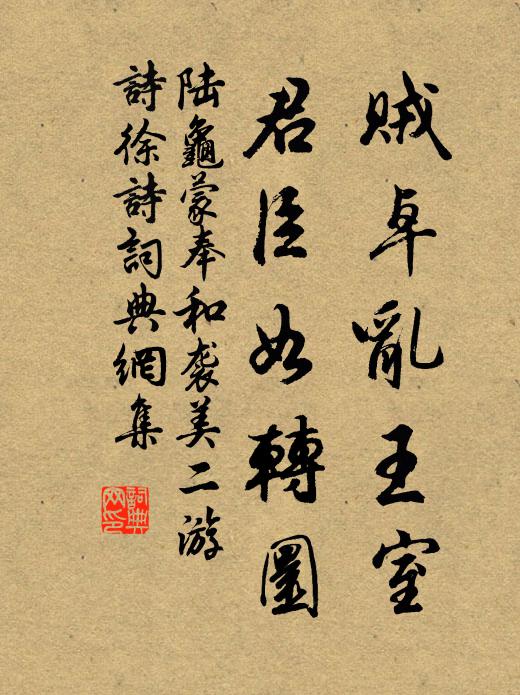 賊卓亂王室
君臣如轉圜
陆龜蒙奉和袭美二游
詩徐詩詞典網集
詞典
网印